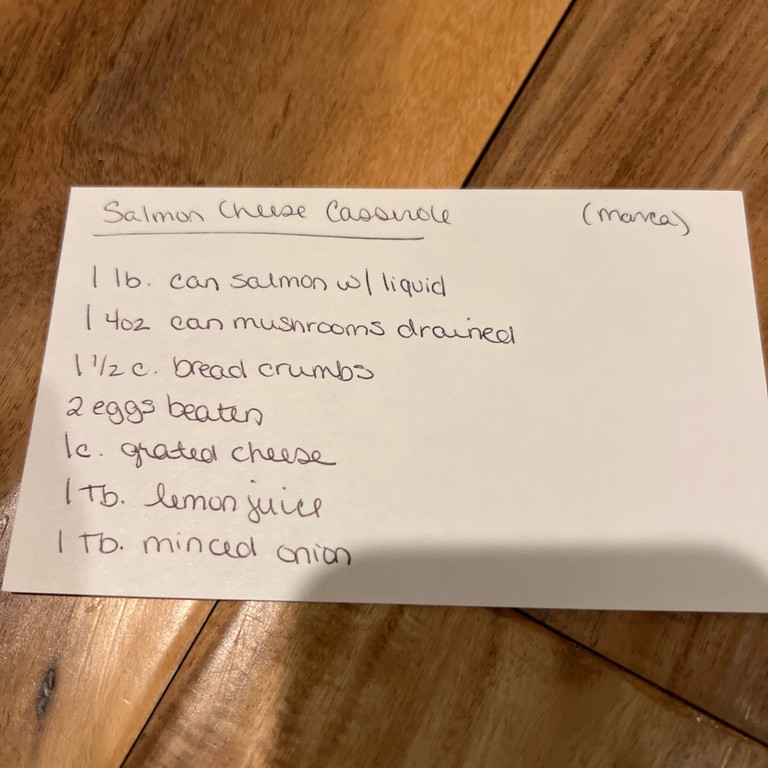 Salmon Cheese Casserole (Marca)
1 lb. can salmon w/ liquid
1 4oz can mushrooms drained
1 1/2 c. bread crumbs
2 eggs beaten
1c. grated cheese
1 Tb. lemon juice
1 Tb. minced onion